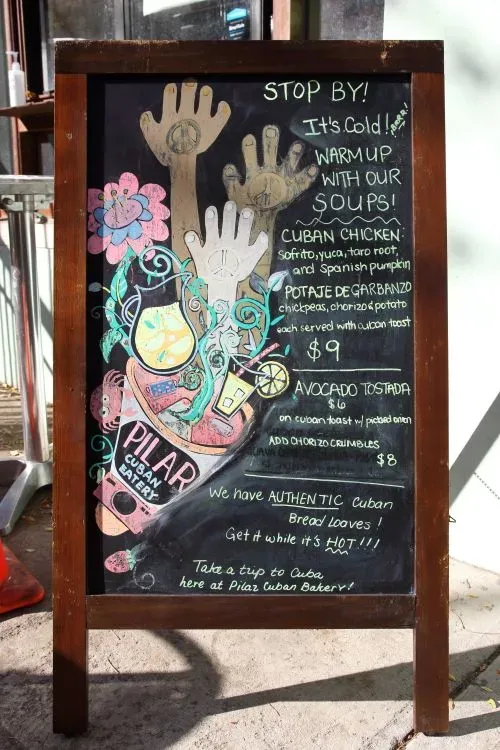 STOP BY!
It's Cold! BRRR!
WARM UP
WITH OUR
SOUPS!
CUBAN CHICKEN:
sofrito, yuca, taro root,
and Spanish pumpkin
POTAJE DE GARBANZO
chickpeas, chorizo & potato
each served with cuban toast
$9
AVOCADO TOSTADA
$6
on cuban toast w/ pickled onion
ADD CHORIZO CRUMBLES
$8
PILAR
CUBAN
EATERY
We have AUTHENTIC Cuban
Bread Loaves!
Get it while it's HOT!!!
Take a trip to Cuba
here at Pilar Cuban Bakery!